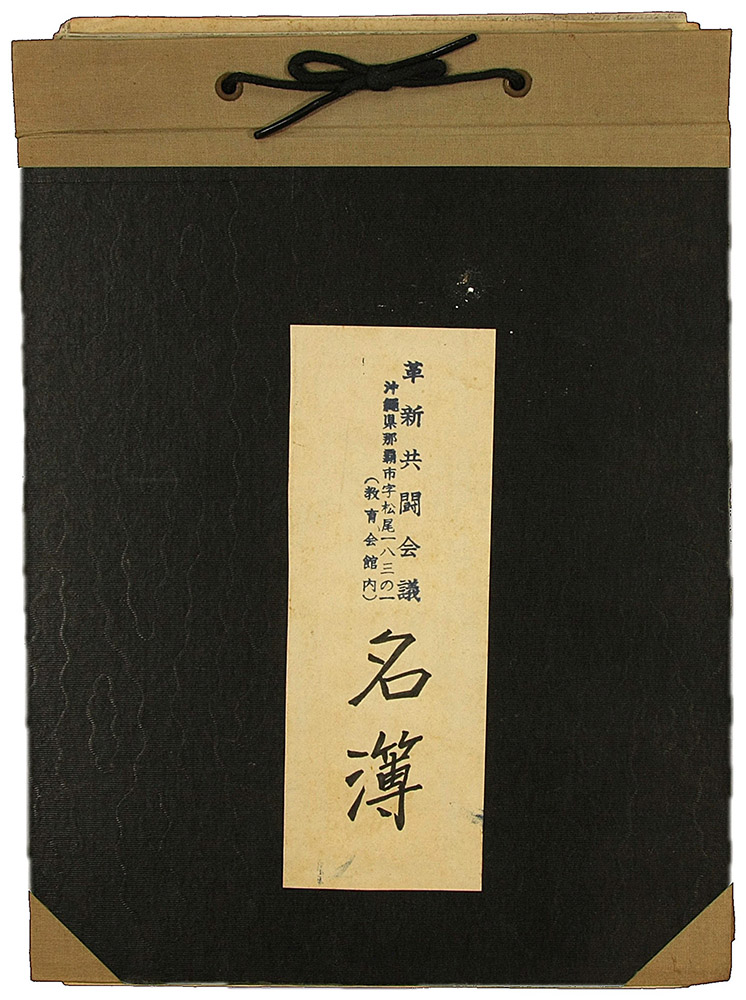 革新共闘会議
沖繩県那覇市字松尾一八三の一
(教育会館内)
名簿